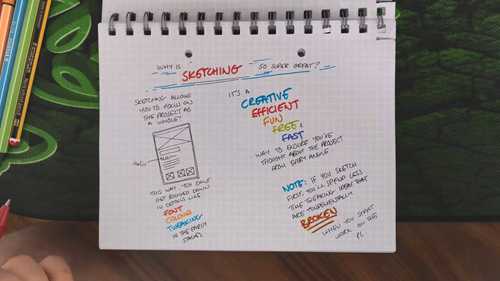 WHY IS SKETCHING SO SUPER GREAT?
SKETCHING ALLOWS
YOU TO FOCUS ON
THE PROJECT AS
A WHOLE!
THIS WAY YOU DON'T
GET BOGGED DOWN
IN DETAILS LIKE
FONT
COLOURS
TWEAKING
IN THE EARLY
STAGES
IT'S A
CREATIVE
EFFICIENT
FUN
FREE &
FAST
WAY TO ENSURE YOU'VE
THOUGHT ABOUT THE PROJECT
FROM EVERY ANGLE
NOTE: IF YOU SKETCH
FIRST, YOU'LL SPEND LESS
TIME TWEAKING IDEAS THAT
ARE FUNDAMENTALLY
BROKEN
WHEN YOU START
WORK ON THE
PC